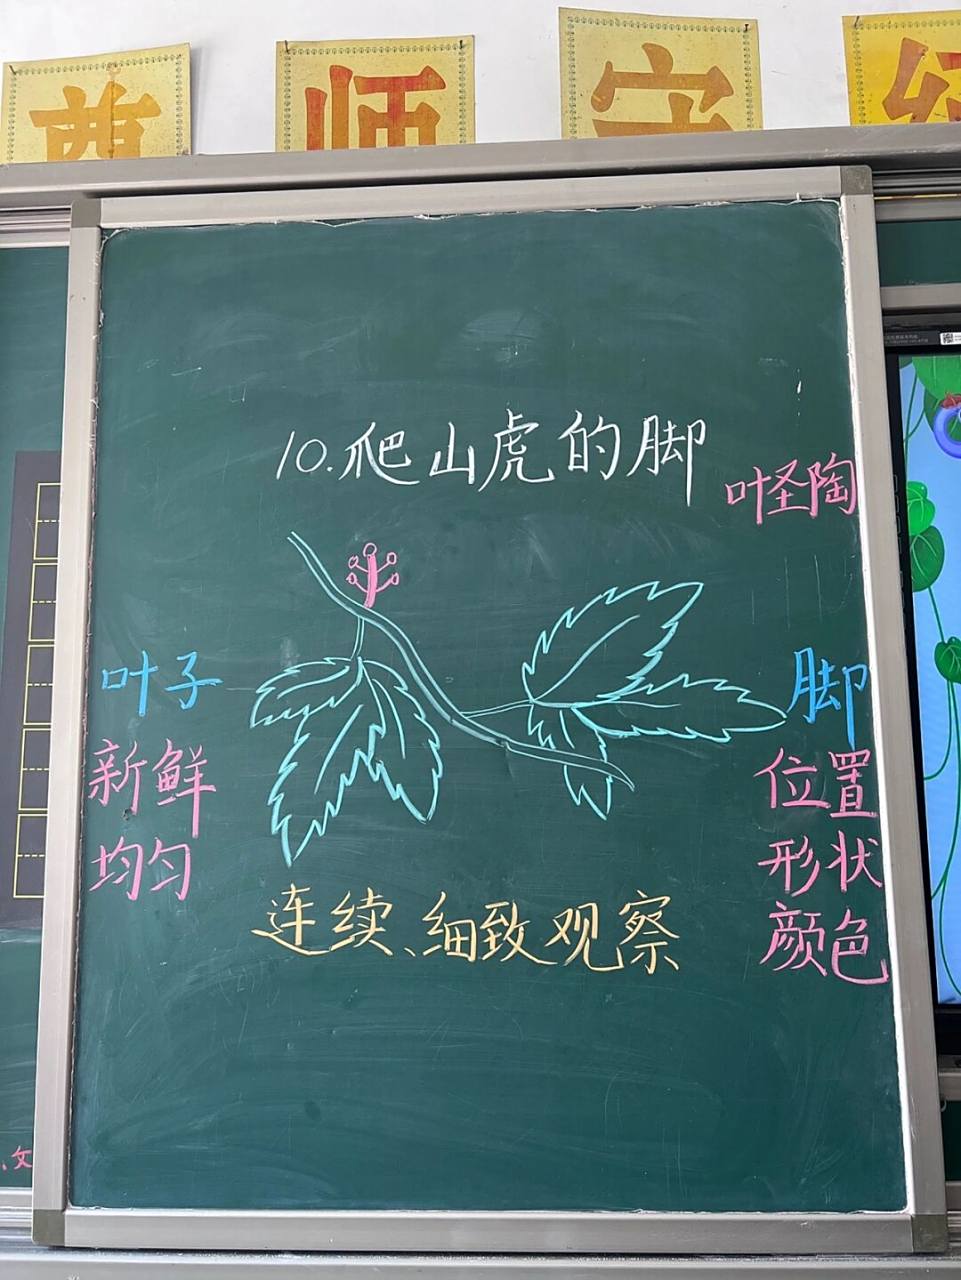 尊师守纪
10.爬山虎的脚
叶圣陶
叶子
新鲜
均匀
脚
位置
形状
颜色
连续、细致观察
、文